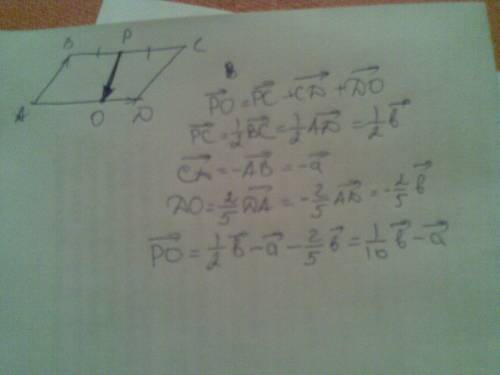 B P C
A O D
B
PO→ = PC→ + CD→ + DO→
PC→ = 1/2 BC→ = 1/2 AD→ = 1/2 b→
CD→ = -AB→ = -a→
DO = 2/5 DA→ = -2/5 AD→ = -2/5 b→
PO→ = 1/2 b→ - a→ - 2/5 b→ = 1/10 b→ - a→